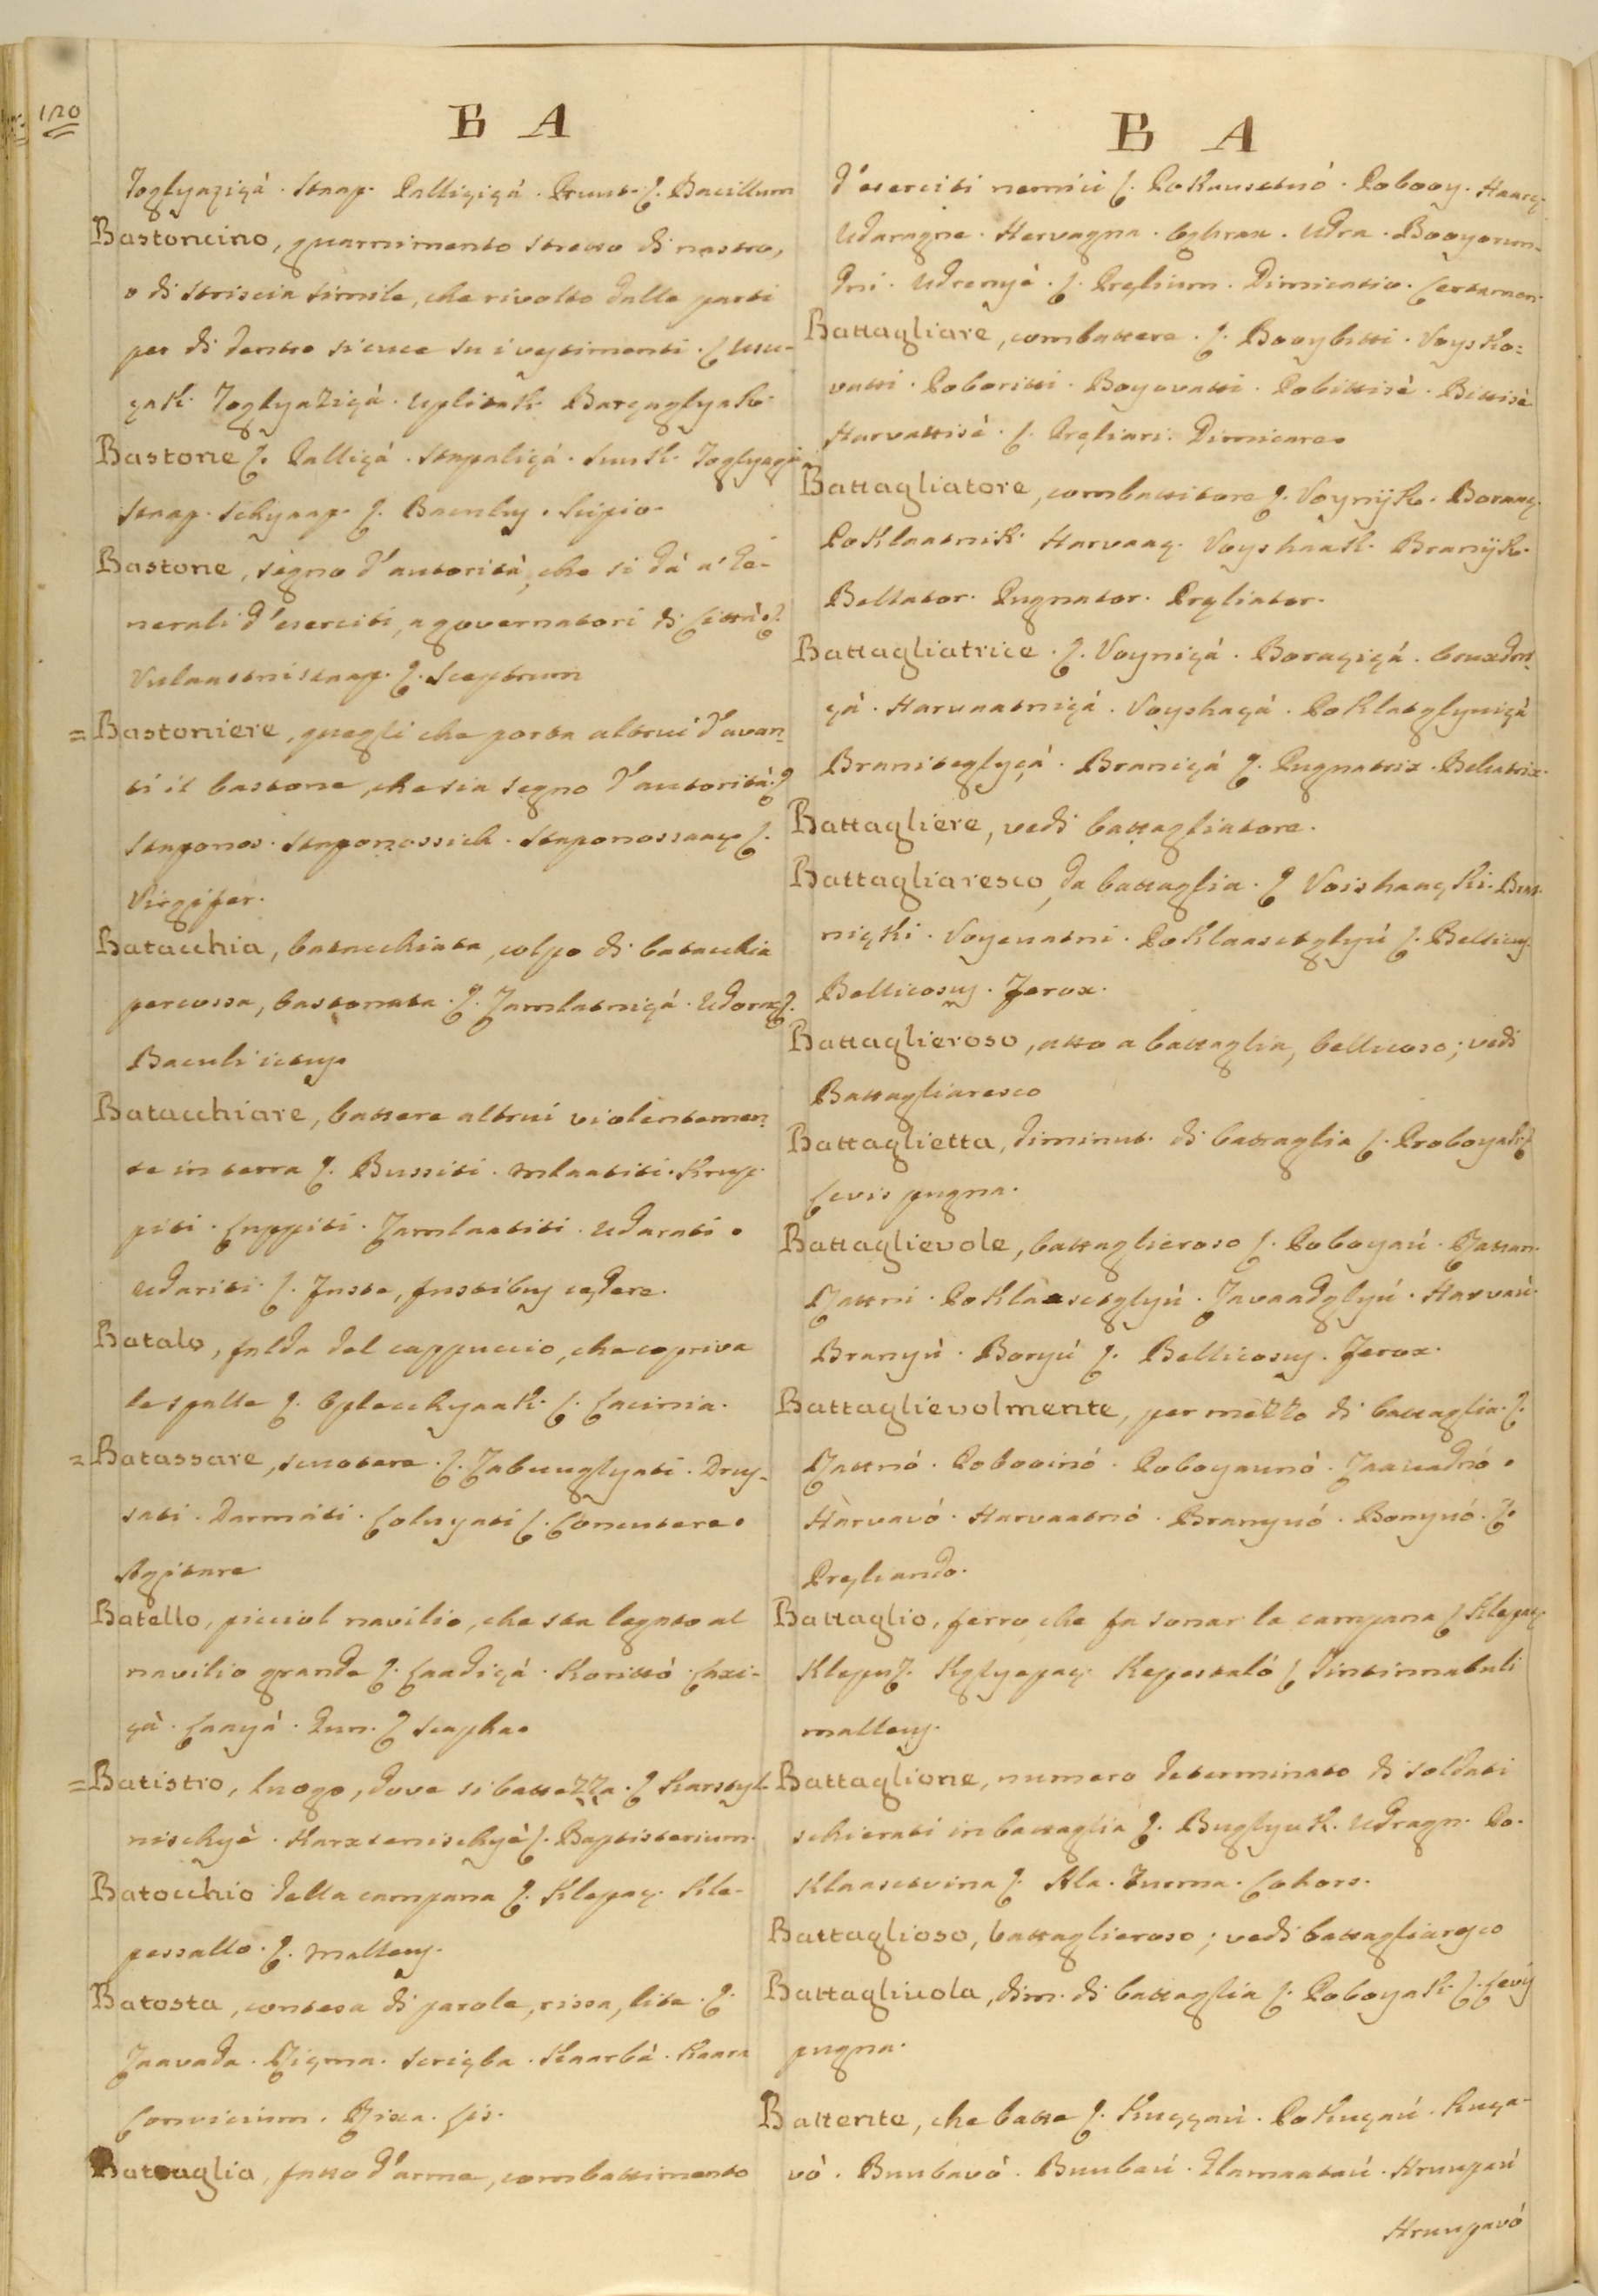 120
B A
Toglyazicá. Staap. Palliçiçá. Pruut. L. Bacillum
Bastoncino, guarnimento stretto di nastro,
o di striscia simile, che rivolto dalle parti
per di dentro si cuce su i vestimenti.
çak. Toglyaziçà. Uplitak. Barçaglyak.
Bastone I. Palliçá. Stapaliçá.
Staap. Schyaap. L. Baculus. Scipio.
Bastone, segno d'autorità, che si dà a' Ge-
nerali d'eserciti, a governatori di Città. I.
Vulaastni staap. L. Sceptrum
= Bastoniere, quegli che porta altrui d'avan-
ti il bastone, che sia segno d'autorità. I
Staponos. Staponossich. Staponossaaç L.
Virgifer.
Batacchia, batacchiata, colpo di batacchia
percossa, bastonata. I. Zamlatniçá. Udoraç L.
Baculi ictus.
Batacchiare, battere altrui violentemen-
te in terra I. Bussiti. Mlaatiti. Krup-
piti. Luppiti. Zamlaatiti. Udarati.
Udariti. L. Fuste, fustibus cedere.
Batalo, falda del cappuccio, che copriva
le spalle I. Oplecchyaak. L. Lacinia.
= Batassare, scuotere. I. Zabuuglyati. Drus-
sati. Darmati. Coluyati L. Concutere.
Agitare
Batello, picciol navilio, che sta legato al
navilio grande I. Laadiçá. Korittò. Laxi-
çà. Laayá. Dun. L Scapha.
= Batistro, luogo, dove si battezza. I Karstyt-
nischyè. Karxtenischyè L. Baptisterium.
Batocchio della campana I. Klepaç. Kle-
pessallo. L. Malleus.
Batosta, contesa di parole, rissa, lite. I.
Zaavada. Riçma. Scriçba. Kaarbá. Kaara
Convicium. Rixa. Lis.
Battaglia, fatto d'arme, combattimento
B A
d'eserciti nemici I. Pokaustnó. Pobooy. Haarç.
Udaragne. Hervagna. Oghrax. Udra. Booyorun-
dni. Udrenyè. L. Prelium. Dimicatio. Certamen.
Battagliare, combattere. I. Booybitti. Voysko-
vatti. Poboritti. Boyovatti. Pobittisè. Bittisè
Harvattisè. L. Preliari. Dimicare.
Battagliatore, combattitore I. Voynÿk. Boraaç.
Poklaatnik. Harvaaç. Voyshaak. Branÿk.
Bellator. Pugnator. Preliator.
Battagliatrice. I. Voyniçá. Boraçiçá.
çà. Harvaatniçá. Voyshaçá. Poklatglyniçà
Braniteglyçá. Braniçá L. Pugnatrix. Bellatrix.
Battagliere, vedi battagliatore.
Battagliaresco, da battaglia. I Voishaaçki.
niçki. Voyevatni. Poklaasctglyú L. Bellicus.
Bellicosus. Ferox.
Battaglieroso, atto a battaglia, bellicoso; vedi
Battagliaresco
Battaglietta, diminut. di battaglia I. Proboyak L
Levis pugna.
Battaglievole, battaglieroso I. Poboyaú. Rattan.
Rattni. Poklaasctglyú. Zavaadglyú. Harvaú.
Branyú. Boryú L. Bellicosus. Ferox.
Battaglievolmente, per mezzo di battaglia. I.
Rattnó. Pobooinó. Poboyaunó. Zaavadnó.
Harvavó. Harvaatnó. Branynó. Bonynó. L.
Preliando.
Battaglio, ferro, che fa sonar la campana I Klepaç
Klepuz. Kglyepaç. Kepestaló L Tintinnabuli
malleus.
Battaglione, numero determinato di soldati
schierati in battaglia I. Buglyuk. Udragn. Po-
klaasctvina L. Ala. Turma. Cohors.
Battaglioso, battaglieroso; vedi battagliaresco
Battagliuola, dim. di battaglia I. Poboyak. L. Levis
pugna.
Battente, che batte I. Kuççaú. Pokuçaú. Kuça-
vò. Buubavò. Buubaú. Hruupaú
Hruupavó